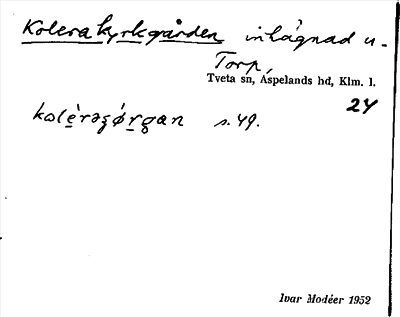 Kolerakyrkgården inhägnad u.
Torp,
Tveta sn, Aspelands hd, Klm. l.
24
s. 49.
Ivar Modéer 1952